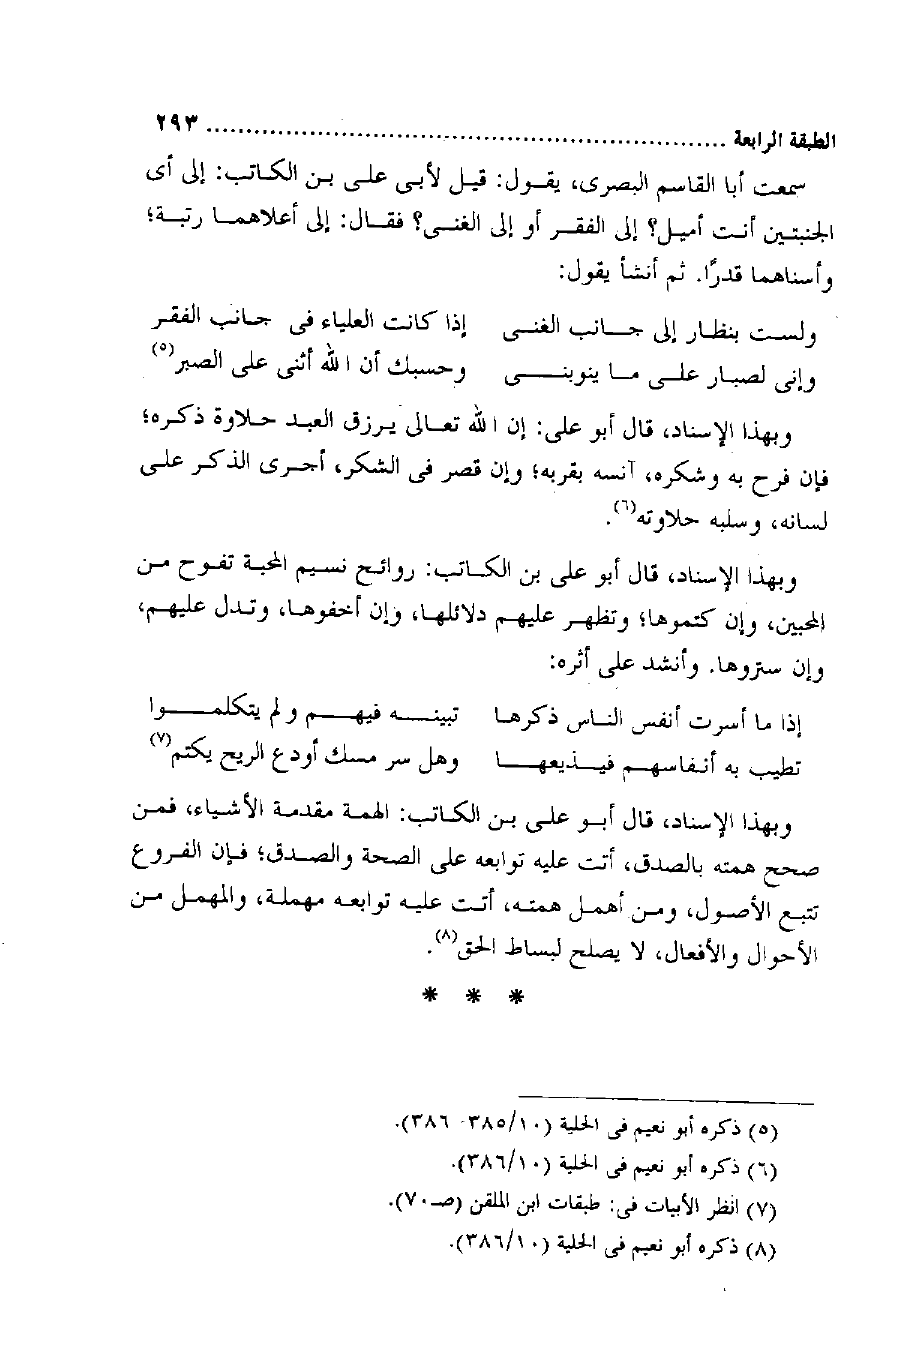 الطبقة الرابعة ........................................................................ ٢٩٣
سمعت أبا القاسم البصرى، يقول: قيل لأبى على بن الكاتب: إلى أى
الجنبتين أنت أميل؟ إلى الفقر أو إلى الغنى؟ فقال: إلى أعلاهما رتبة؛
وأسناهما قدرًا. ثم أنشأ يقول:
ولست بنظار إلى جانب الغنى إذا كانت العلياء فى جانب الفقر
وإنى لصبار على ما ينوبنى وحسبك أن الله أثنى على الصبر(٥)
وبهذا الإسناد، قال أبو على: إن الله تعالى يرزق العبد حلاوة ذكره؛
فإن فرح به وشكره، آنسه بقربه؛ وإن قصر فى الشكر، أجرى الذكر على
لسانه، وسلبه حلاوته(٦).
وبهذا الإسناد، قال أبو على بن الكاتب: روائح نسيم المحبة تفوح من
المحبين، وإن كتموها؛ وتظهر عليهم دلائلها، وإن أخفوها، وتدل عليهم،
وإن ستروها. وأنشد على أثره:
إذا ما أسرت أنفس الناس ذكرها تبينه فيهم ولم يتكلموا
تطيب به أنفاسهم فيذيعها وهل سر مسك أودع الريح يكتم(٧)
وبهذا الإسناد، قال أبو على بن الكاتب: الهمة مقدمة الأشياء، فمن
صحح همته بالصدق، أتت عليه توابعه على الصحة والصدق؛ فإن الفروع
تتبع الأصول، ومن أهمل همته، أتت عليه توابعه مهملة، والمهمل من
الأحوال والأفعال، لا يصلح لبساط الحق(٨).
* * *
(٥) ذكره أبو نعيم فى الحلية (٣٨٥/١٠- ٣٨٦).
(٦) ذكره أبو نعيم فى الحلية (٣٨٦/١٠).
(٧) انظر الأبيات فى: طبقات ابن الملقن (صـ٧٠).
(٨) ذكره أبو نعيم فى الحلية (٣٨٦/١٠).